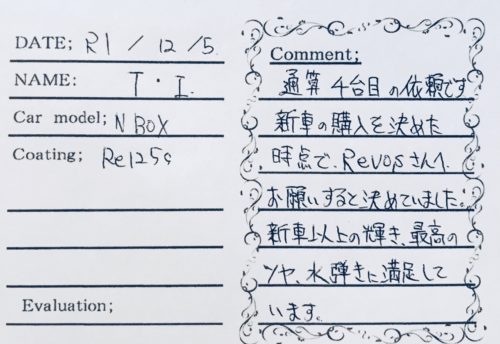 DATE; R1 / 12 / 5.
NAME: T・I
Car model; N BOX
Coating; Re125g
Evaluation;
Comment;
通算 4台目の依頼です
新車の購入を決めた
時点で、Revopsさんへ
お願いすると決めていました。
新車以上の輝き、最高の
ツヤ、水弾きに満足して
います。